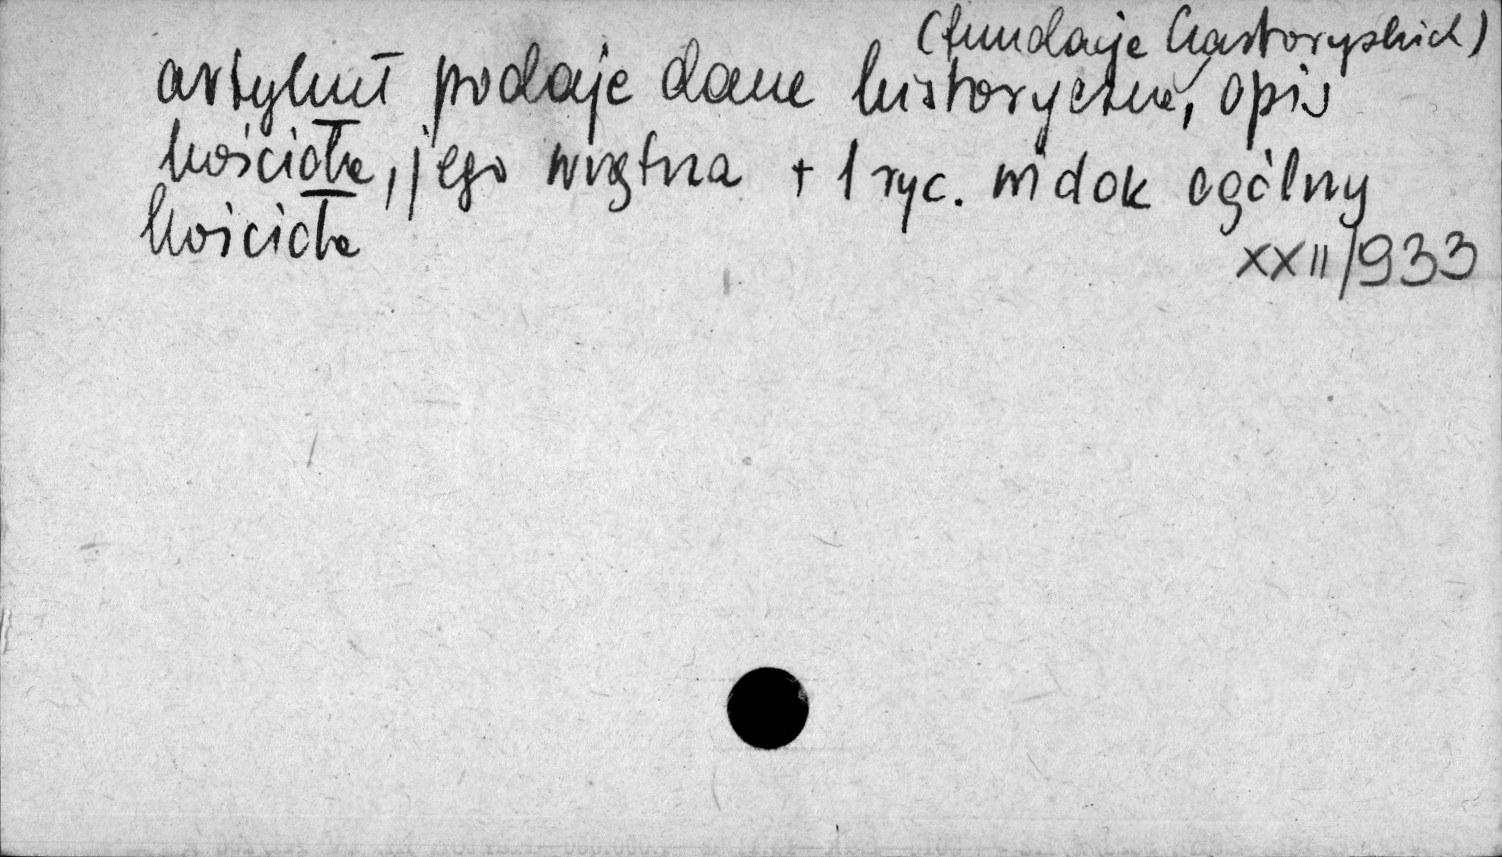 (fundacje Czartoryskich)
artykuł podaje dane historyczne, opis
kościoła, jego wnętrza + 1 ryc. widok ogólny
kościoła
XXII/933